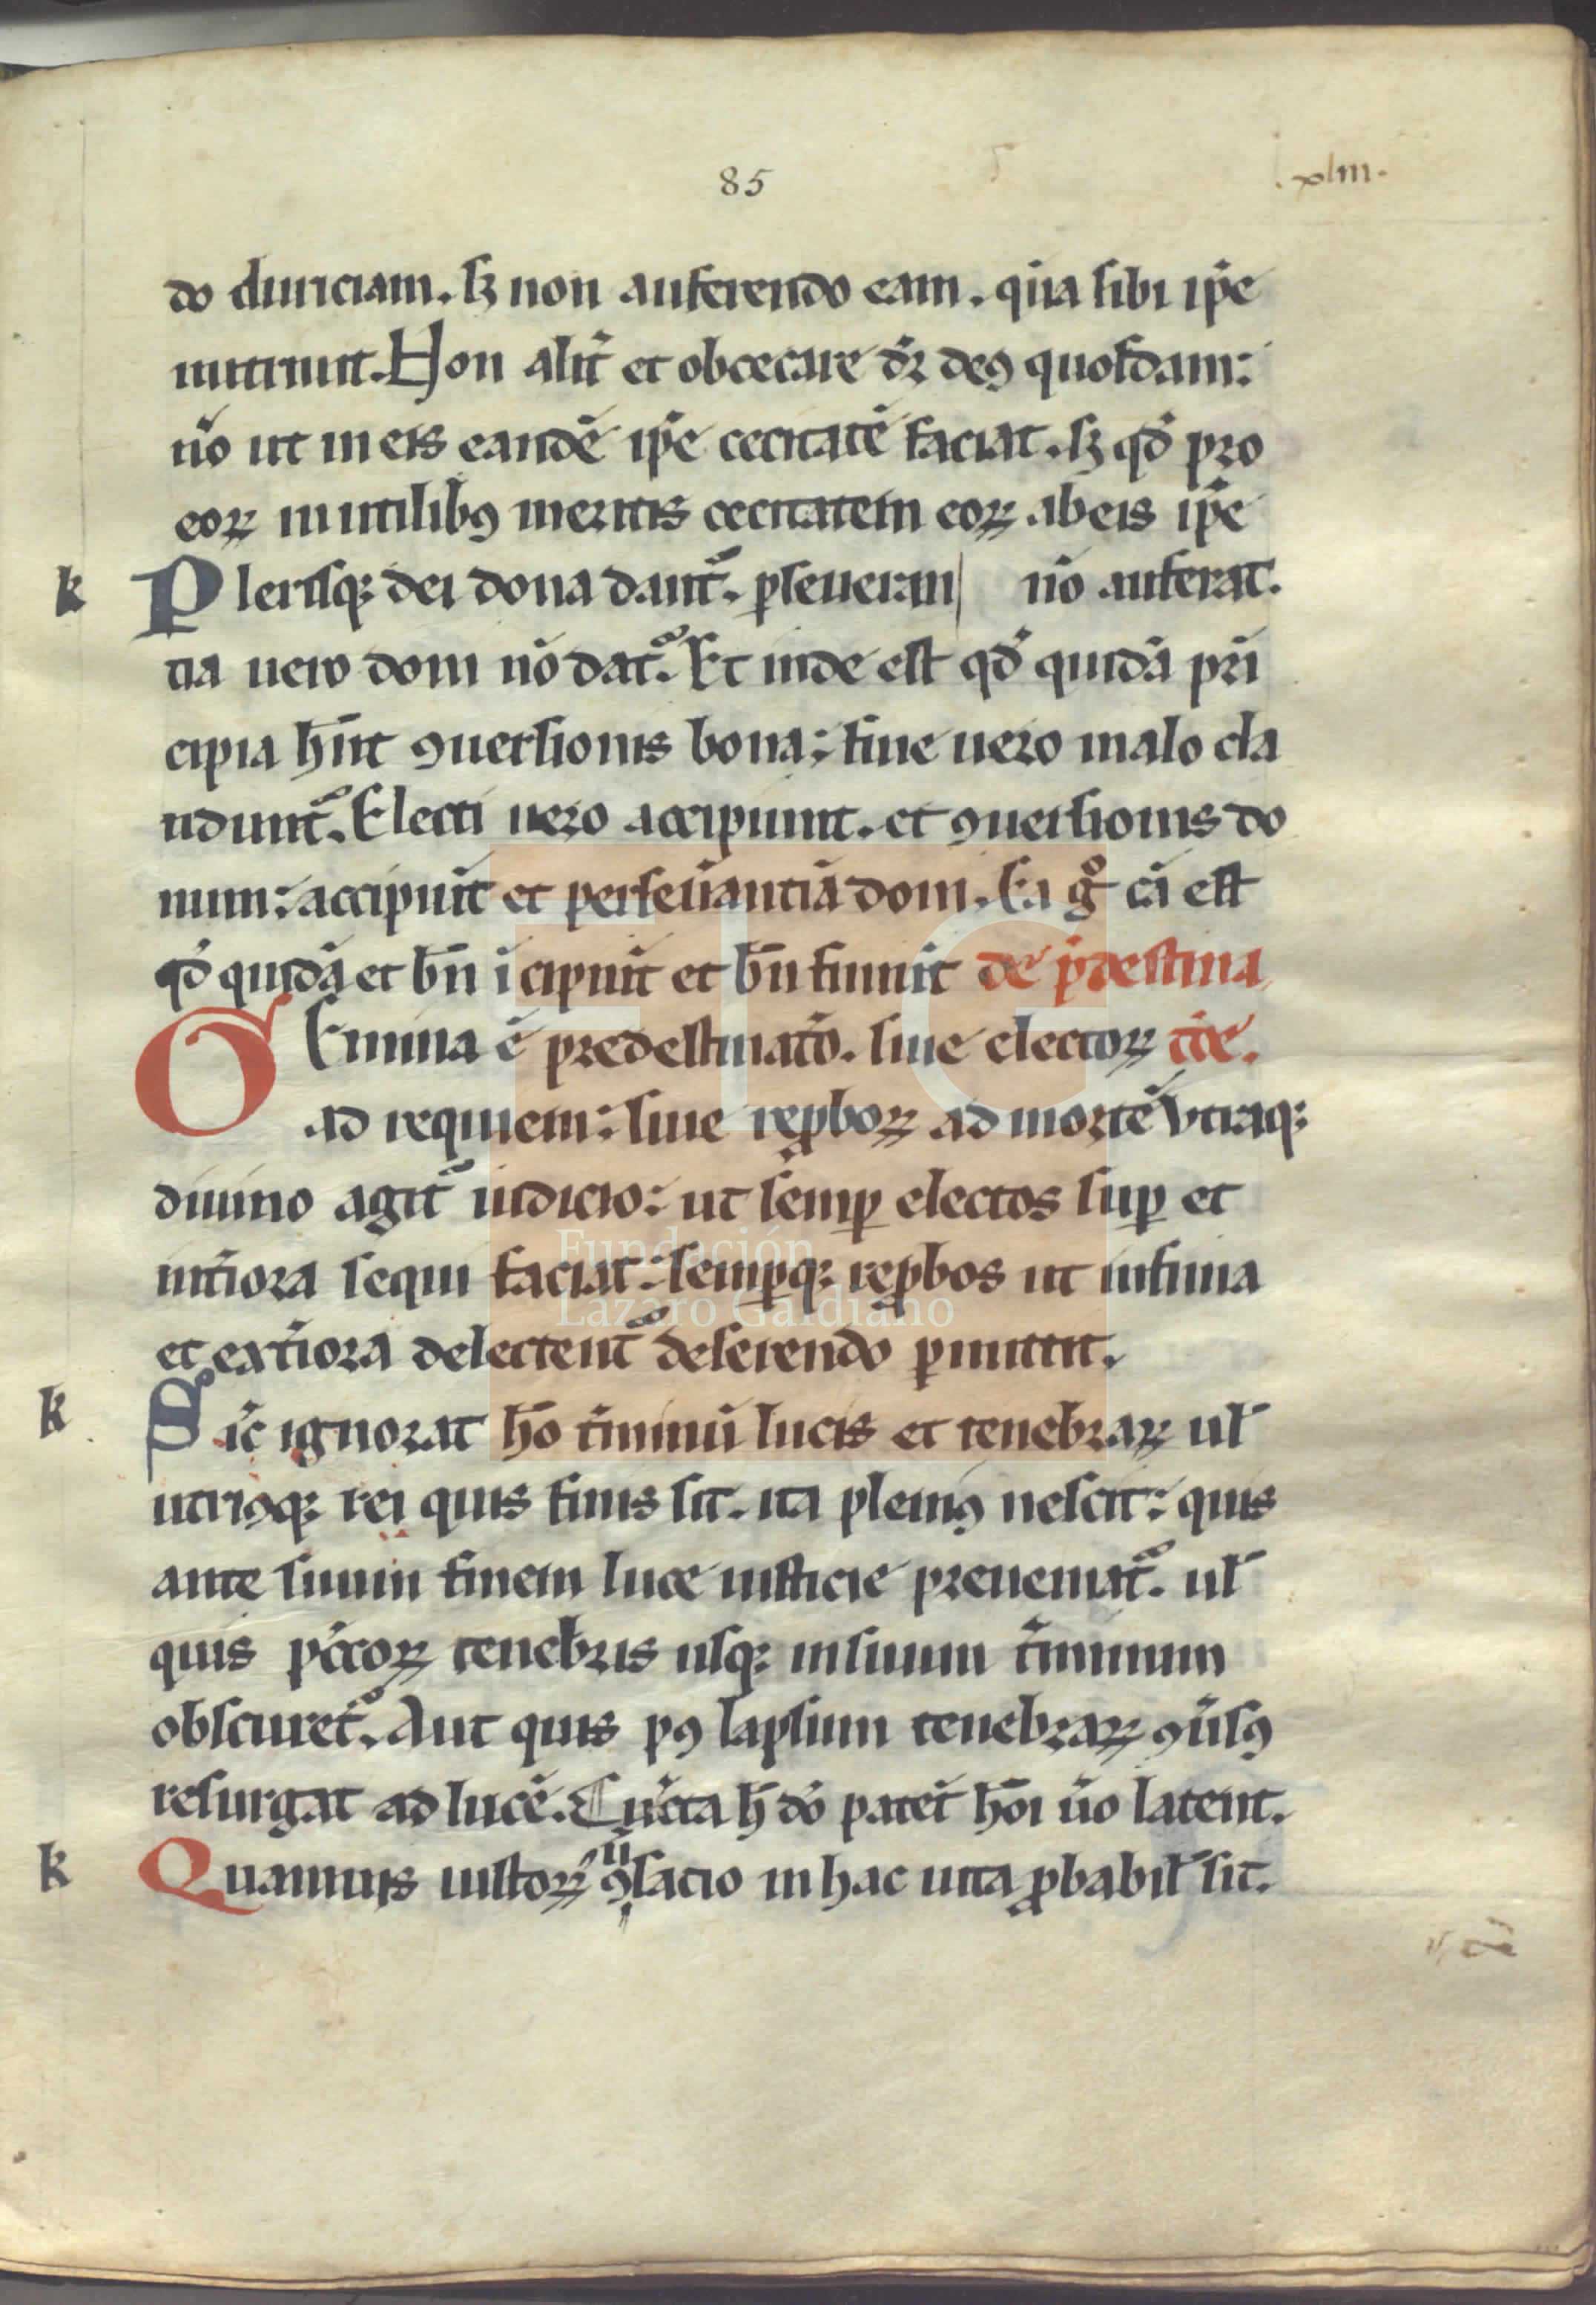 85
.xliii.
do duriciam. sꝫ non auferendo eam. qͥa sibi ip̄e
nutriunt. Non alit̄ et obcecare dr̄ deꝰ quosdam:
nō ut in eis eandē ip̄e cecitatē faciat. sꝫ qd̄ pro
eoꝝ inutilibꝰ meritis cecitatem eoꝝ ab eis ip̄e
k Plerisqꝫ dei dona dant᷑. ꝑseueran| nō auferat.
tia uero doni nō dat᷑. Et inde est qd̄ quidā pri
cipia hn̄t ꝯuersionis bona: fine uero malo cla
udunt᷑. Electi uero accipiunt. et ꝯuersionis do
num: accipiūt et perseūantiā doni. Ea gͦ cā est
qd̄ quidā et bn̄ īcipiūt et bn̄ finiūt de p̄destina
GEmina ē predestinatō. siue electoꝝ tōe.
ad requiem: siue rep̱boꝝ ad mortē Vtraqꝫ
diuino agit᷑ iudicio: ut semꝑ electos suꝑ et
int̄iora sequi faciat: semꝑqꝫ reꝓbos ut infima
et ext̄iora delectent᷑ deserendo ꝑmittit.
k Sic̄ ignorat hō t̄minū lucis et tenebraꝝ ul̄
utriꝰqꝫ rei quis finis sit. ita pleniꝰ nescit: quis
ante suum finem luce iusticie preueniat᷑. ul̄
quis pc̄cōꝝ tenebris usqꝫ in suum t̄minum
obscuret᷑. Aut quis pꝰ lapsum tenebraꝝ ꝯūsꝰ
resurgat ad lucē. Cūcta h̄ dō patēt hōi ūo latent.
k Quamuis iustoꝝ ꝯuersacio in hac uita ꝓbabil̄ sit.
Fundación
Lázaro Galdiano